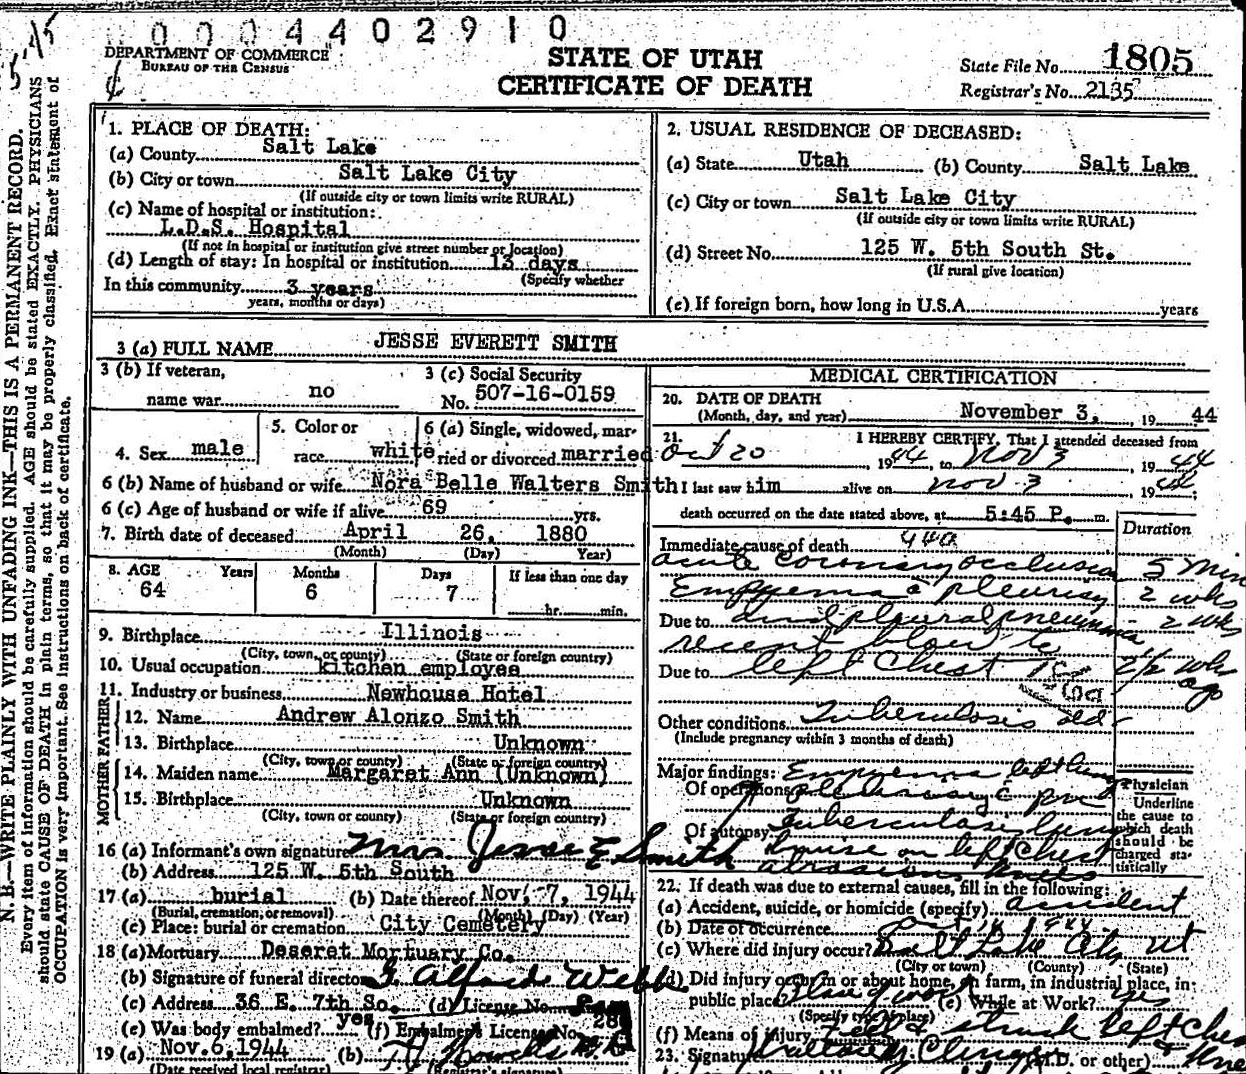 0004402910
DEPARTMENT OF COMMERCE
BUREAU OF THE CENSUS
STATE OF UTAH
CERTIFICATE OF DEATH
State File No. 1805
Registrar's No. 2135
N. B.—WRITE PLAINLY WITH UNFADING INK—THIS IS A PERMANENT RECORD.
Every item of information should be carefully supplied. AGE should be stated EXACTLY. PHYSICIANS
should state CAUSE OF DEATH in plain terms, so that it may be properly classified. Exact statement of
OCCUPATION is very important. See instructions on back of certificate.
1. PLACE OF DEATH:
(a) County Salt Lake
(b) City or town Salt Lake City
(If outside city or town limits write RURAL)
(c) Name of hospital or institution:
L.D.S. Hospital
(If not in hospital or institution give street number or location)
(d) Length of stay: In hospital or institution 13 days
(Specify whether
In this community 3 years
years, months or days)
2. USUAL RESIDENCE OF DECEASED:
(a) State Utah (b) County Salt Lake
(c) City or town Salt Lake City
(If outside city or town limits write RURAL)
(d) Street No. 125 W. 5th South St.
(If rural give location)
(e) If foreign born, how long in U.S.A. years
3 (a) FULL NAME JESSE EVERETT SMITH
3 (b) If veteran,
name war no
3 (c) Social Security
No. 507-16-0159
4. Sex male
5. Color or
race white
6 (a) Single, widowed, mar-
ried or divorced married
6 (b) Name of husband or wife Nora Belle Walters Smith
6 (c) Age of husband or wife if alive 69 yrs.
7. Birth date of deceased April 26, 1880
(Month) (Day) Year)
8. AGE Years Months Days If less than one day
64 6 7 hr. min.
9. Birthplace Illinois
(City, town, or county) (State or foreign country)
10. Usual occupation kitchen employee
11. Industry or business Newhouse Hotel
FATHER
12. Name Andrew Alonzo Smith
13. Birthplace Unknown
(City, town or county) (State or foreign country)
MOTHER
14. Maiden name Margaret Ann (Unknown)
15. Birthplace Unknown
(City, town or county) (State or foreign country)
16 (a) Informant's own signature Mrs Jesse E Smith
(b) Address 125 W. 5th South
17 (a) burial (b) Date thereof Nov. 7, 1944
(Burial, cremation, or removal) (Month) (Day) (Year)
(c) Place: burial or cremation City Cemetery
18 (a) Mortuary Deseret Mortuary Co.
(b) Signature of funeral director G. Alfonso Webb
(c) Address 36 E. 7th So. (d) License No.
(e) Was body embalmed? yes (f) Embalmers License No.
19 (a) Nov. 6, 1944 (b)
(Date received local registrar) (Registrar's signature)
MEDICAL CERTIFICATION
20. DATE OF DEATH
(Month, day, and year) November 3, 19 44
21. I HEREBY CERTIFY, That I attended deceased from
Oct 20, 1944, to Nov 3, 1944
I last saw him alive on Nov 3, 1944;
death occurred on the date stated above, at 5:45 P. m.
Duration
Immediate cause of death
acute coronary occlusion 5 min
Empyema c pleurisy 2 wks
Due to and pleural pneumonia 2 wks
recent blow to
Due to left chest 2 1/2 wks
ago
Other conditions Tuberculosis old
(Include pregnancy within 3 months of death)
Major findings: Empyema left lung
Of operations
Of autopsy Tuberculosis lung
bruise on left chest
abrasions knees
Physician
Underline
the cause to
which death
should be
charged sta-
tistically
22. If death was due to external causes, fill in the following:
(a) Accident, suicide, or homicide (specify) accident
(b) Date of occurrence
(c) Where did injury occur? Salt Lake City Ut
(City or town) (County) (State)
(d) Did injury occur in or about home, on farm, in industrial place, in
public place? Place of work (e) While at Work? yes
(Specify type of place)
(f) Means of injury Fell & struck left chest
& knee
23. Signature (M.D. or other)